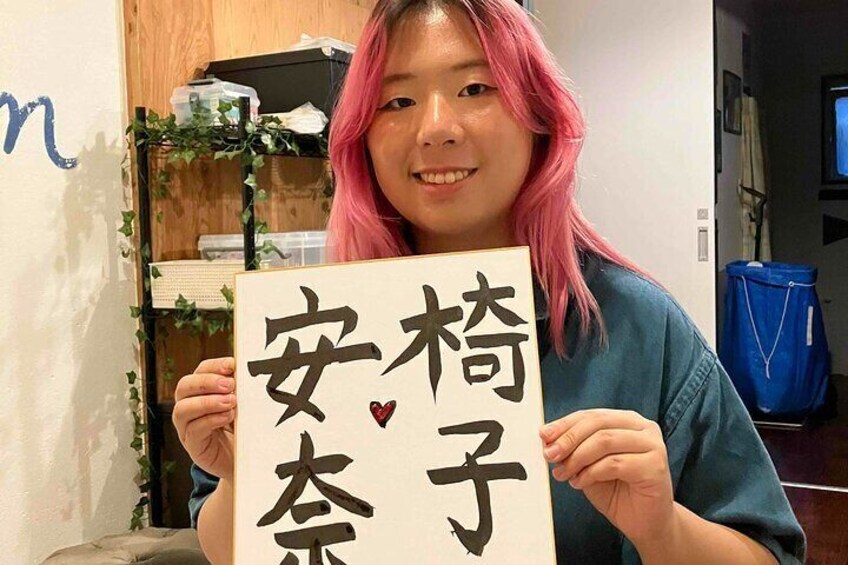 椅子
安奈